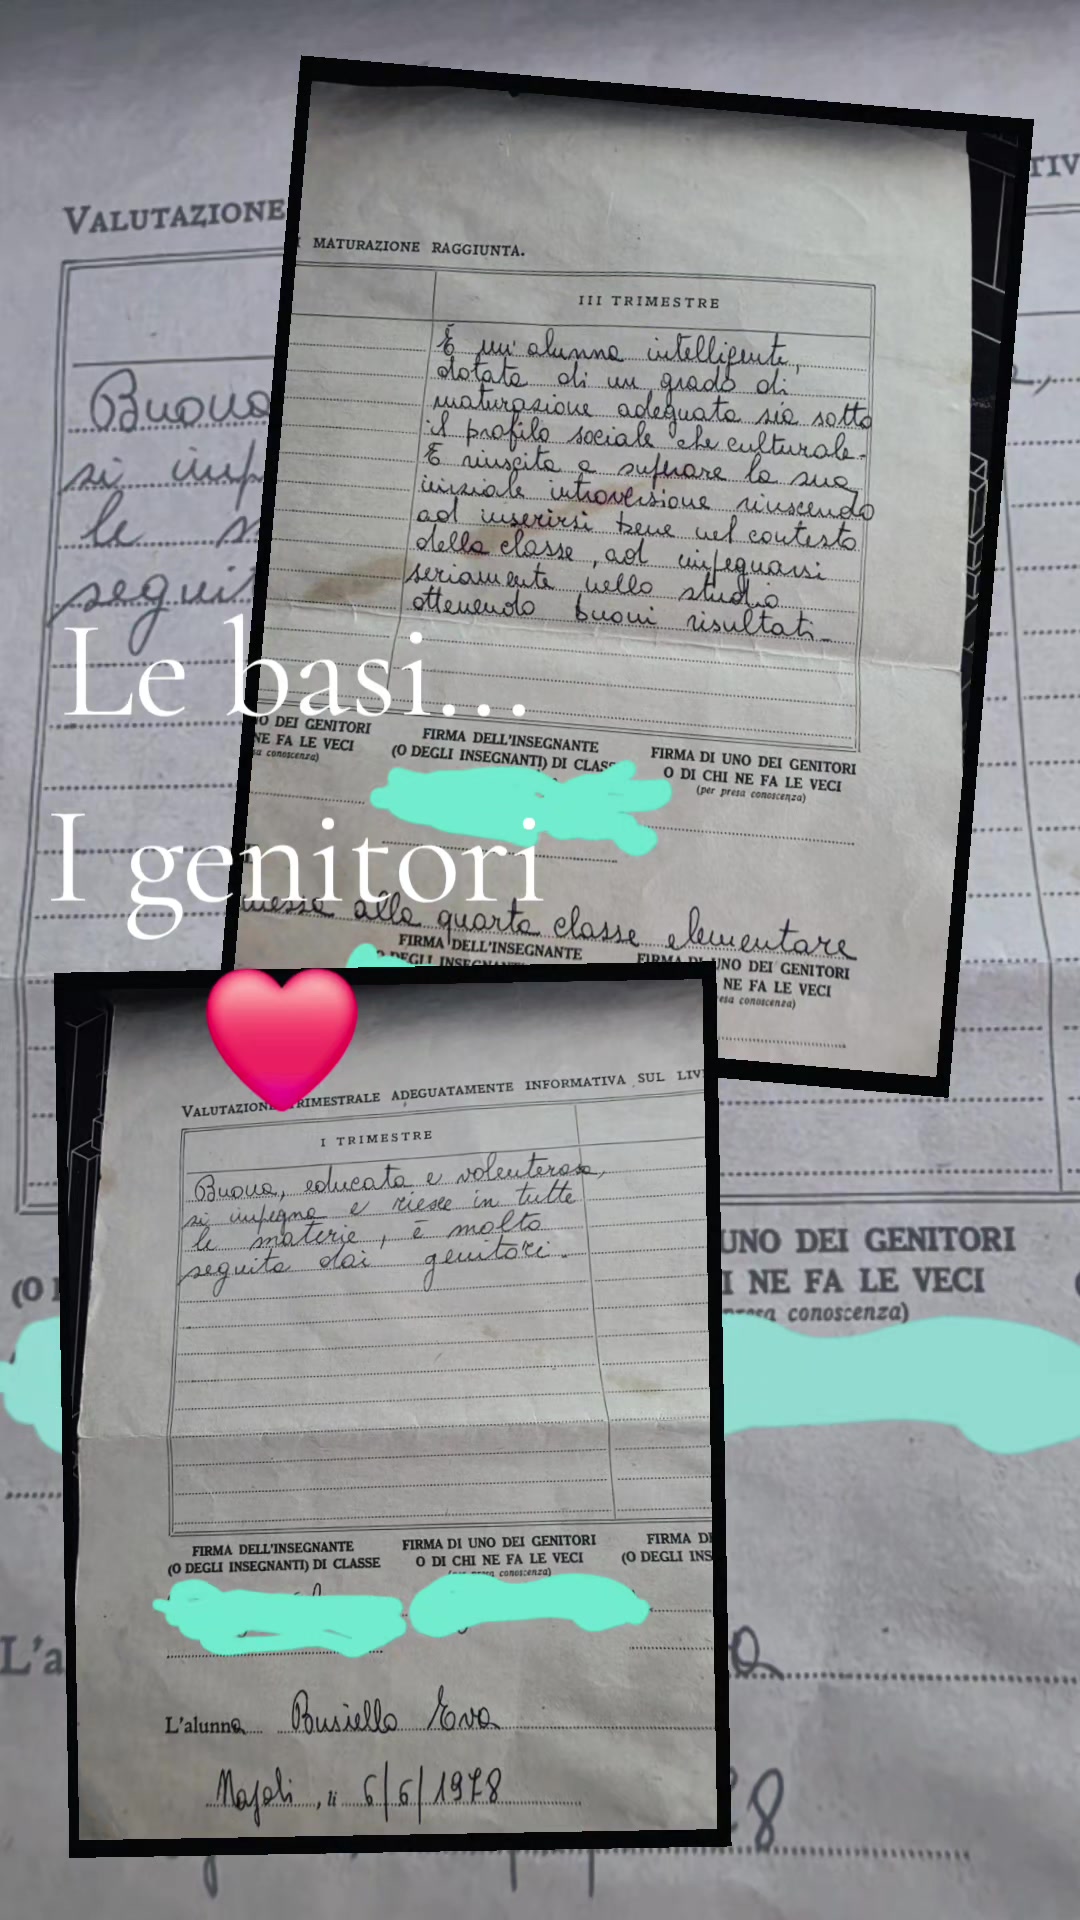 VALUTAZIONE
TIV
Buona
si imp
le s
seguit
MATURAZIONE RAGGIUNTA.
III TRIMESTRE
È un'alunna intelligente,
dotata di un grado di
maturazione adeguata sia sotto
il profilo sociale che culturale.
È riuscita a superare la sua
iniziale introversione riuscendo
ad inserirsi bene nel contesto
della classe, ad impegnarsi
seriamente nello studio
ottenendo buoni risultati.
Le basi...
I genitori
O DEI GENITORI
NE FA LE VECI
sa conoscenza)
FIRMA DELL'INSEGNANTE
(O DEGLI INSEGNANTI) DI CLASS
FIRMA DI UNO DEI GENITORI
O DI CHI NE FA LE VECI
(per presa conoscenza)
messa alla quarta classe elementare
FIRMA DELL'INSEGNANTE
O DEGLI INSEGN
FIRMA DI UNO DEI GENITORI
NE FA LE VECI
esa conoscenza)
VALUTAZIONE TRIMESTRALE ADEGUATAMENTE INFORMATIVA SUL LIV
I TRIMESTRE
Buona, educata e volenterosa,
si impegna e riesce in tutte
le materie, è molto
seguita dai genitori.
FIRMA DELL'INSEGNANTE
(O DEGLI INSEGNANTI) DI CLASSE
FIRMA DI UNO DEI GENITORI
O DI CHI NE FA LE VECI
conoscenza)
FIRMA D
(O DEGLI INS
L'alunna Busiello Eva
Napoli, li 6/6/1978
UNO DEI GENITORI
I NE FA LE VECI
presa conoscenza)
(O
L'a
a
8